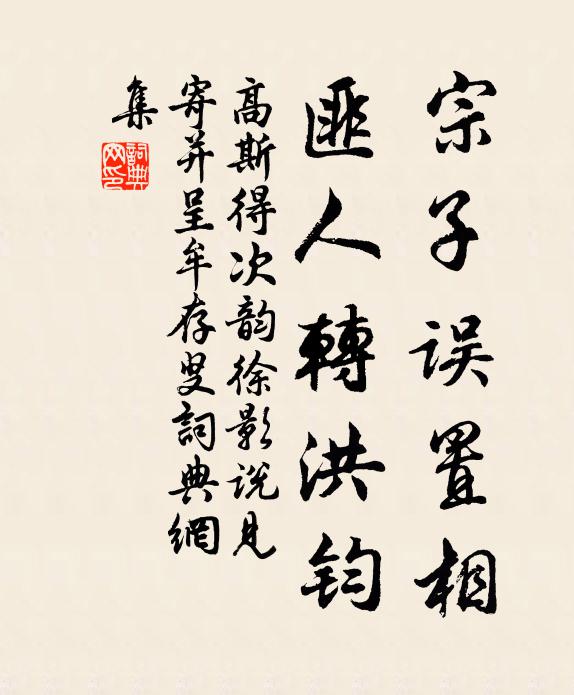 宗子误置相
匪人轉洪钧
高斯得次韵徐影说見
寄并呈牟存叟詞典網
集
詞典網印